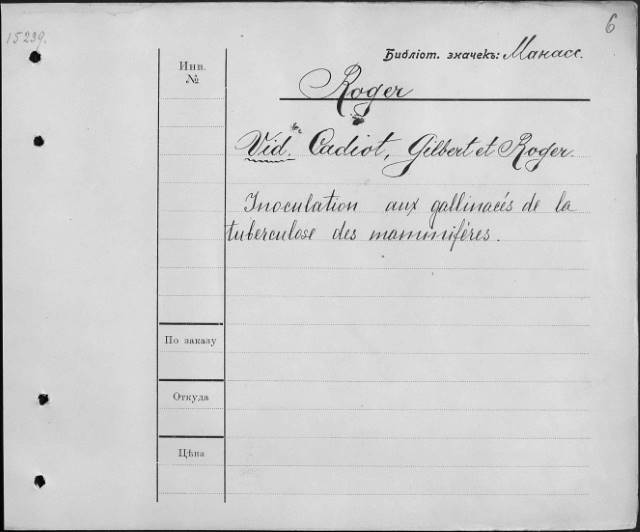 15239.
6
Библіот. значекъ: Манасс.
Инв.
№
Roger
Vid. Cadiot, Gilbert et Roger.
Inoculation aux gallinacés de la
tuberculose des mammiféres.
По заказу
Откуда
Цѣна